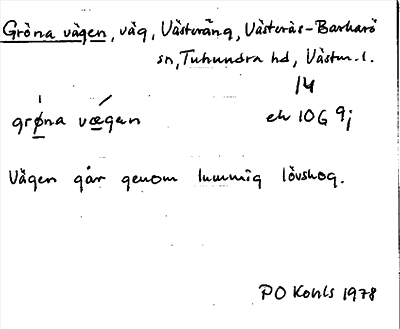 Gröna vägen, väg, Västeräng, Västerås-Barkarö
sn, Tuhundra hd, Västm. l.
14
grøna vægen
ek 10G 9j
Vägen går genom lummig lövskog.
PO Kohls 1978